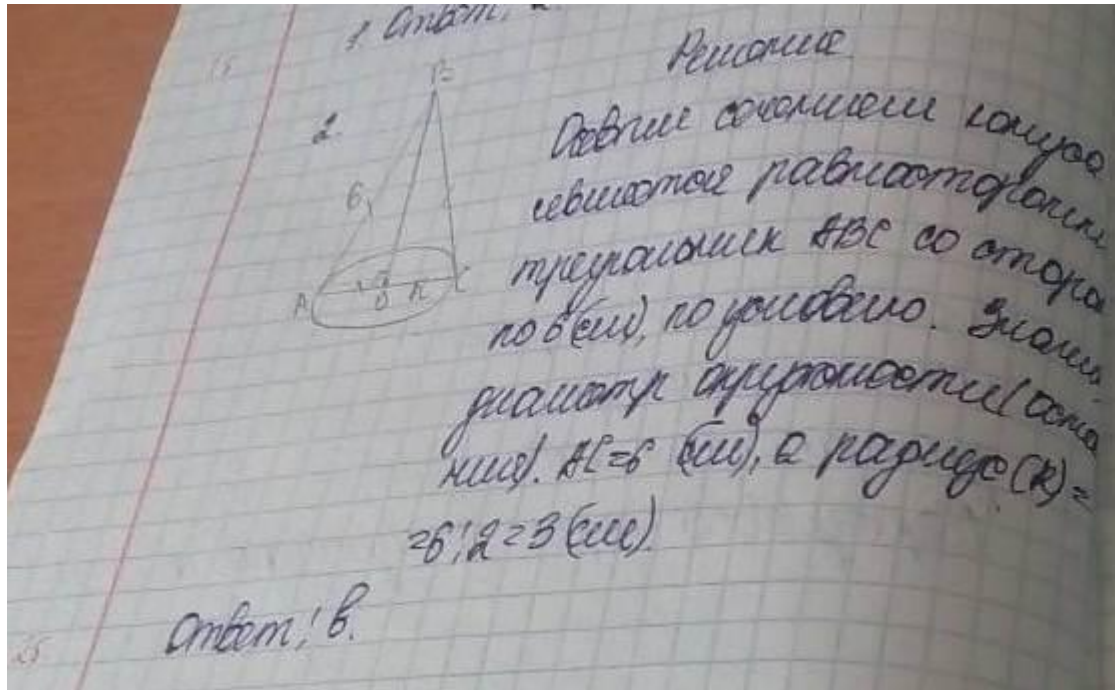 1 Ответ: 2.
Решение
2.
B
6
A
O
R
C
Осевым сечением конуса
является равносторонни
треугольник ABC со сторо
по 6 (см), по условию. Значит,
диаметр окружности (осно
ния). AC=6 (см), а радиус (R)=
=6:2=3 (см)
Ответ: в.